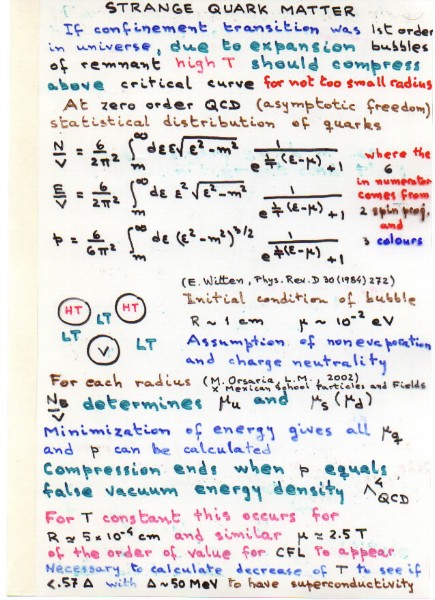 STRANGE QUARK MATTER
If confinement transition was 1st order
in universe, due to expansion bubbles
of remnant high T should compress
above critical curve for not too small radius
At zero order QCD (asymptotic freedom)
statistical distribution of quarks
N/V = 6/2π² ∫_m^∞ dε ε√(ε²-m²) 1/(e^{1/T (ε-μ)} +1)
where the
6
E/V = 6/2π² ∫_m^∞ dε ε²√(ε²-m²) 1/(e^{1/T (ε-μ)} +1)
in numerator
comes from
2 spin proj.
and
p = 6/6π² ∫_m^∞ dε (ε²-m²)^{3/2} 1/(e^{1/T (ε-μ)} +1)
3 colours
(E. Witten, Phys. Rev. D 30 (1984) 272)
Initial condition of bubble
HT HT
LT
R ~ 1 cm μ ~ 10⁻² eV
LT V LT
Assumption of nonevaporation
and charge neutrality
For each radius (M. Orsaria, L.M. 2002)
X Mexican School Particles and Fields
N_B/V determines μu and μs (μd)
Minimization of energy gives all μq
and p can be calculated
Compression ends when p equals
false vacuum energy density Λ⁴QCD
For T constant this occurs for
R ≃ 5 x 10⁻⁴ cm and similar μ ≃ 2.5 T
of the order of value for CFL to appear
Necessary to calculate decrease of T to see if
<.57 Δ with Δ ~ 50 MeV to have superconductivity